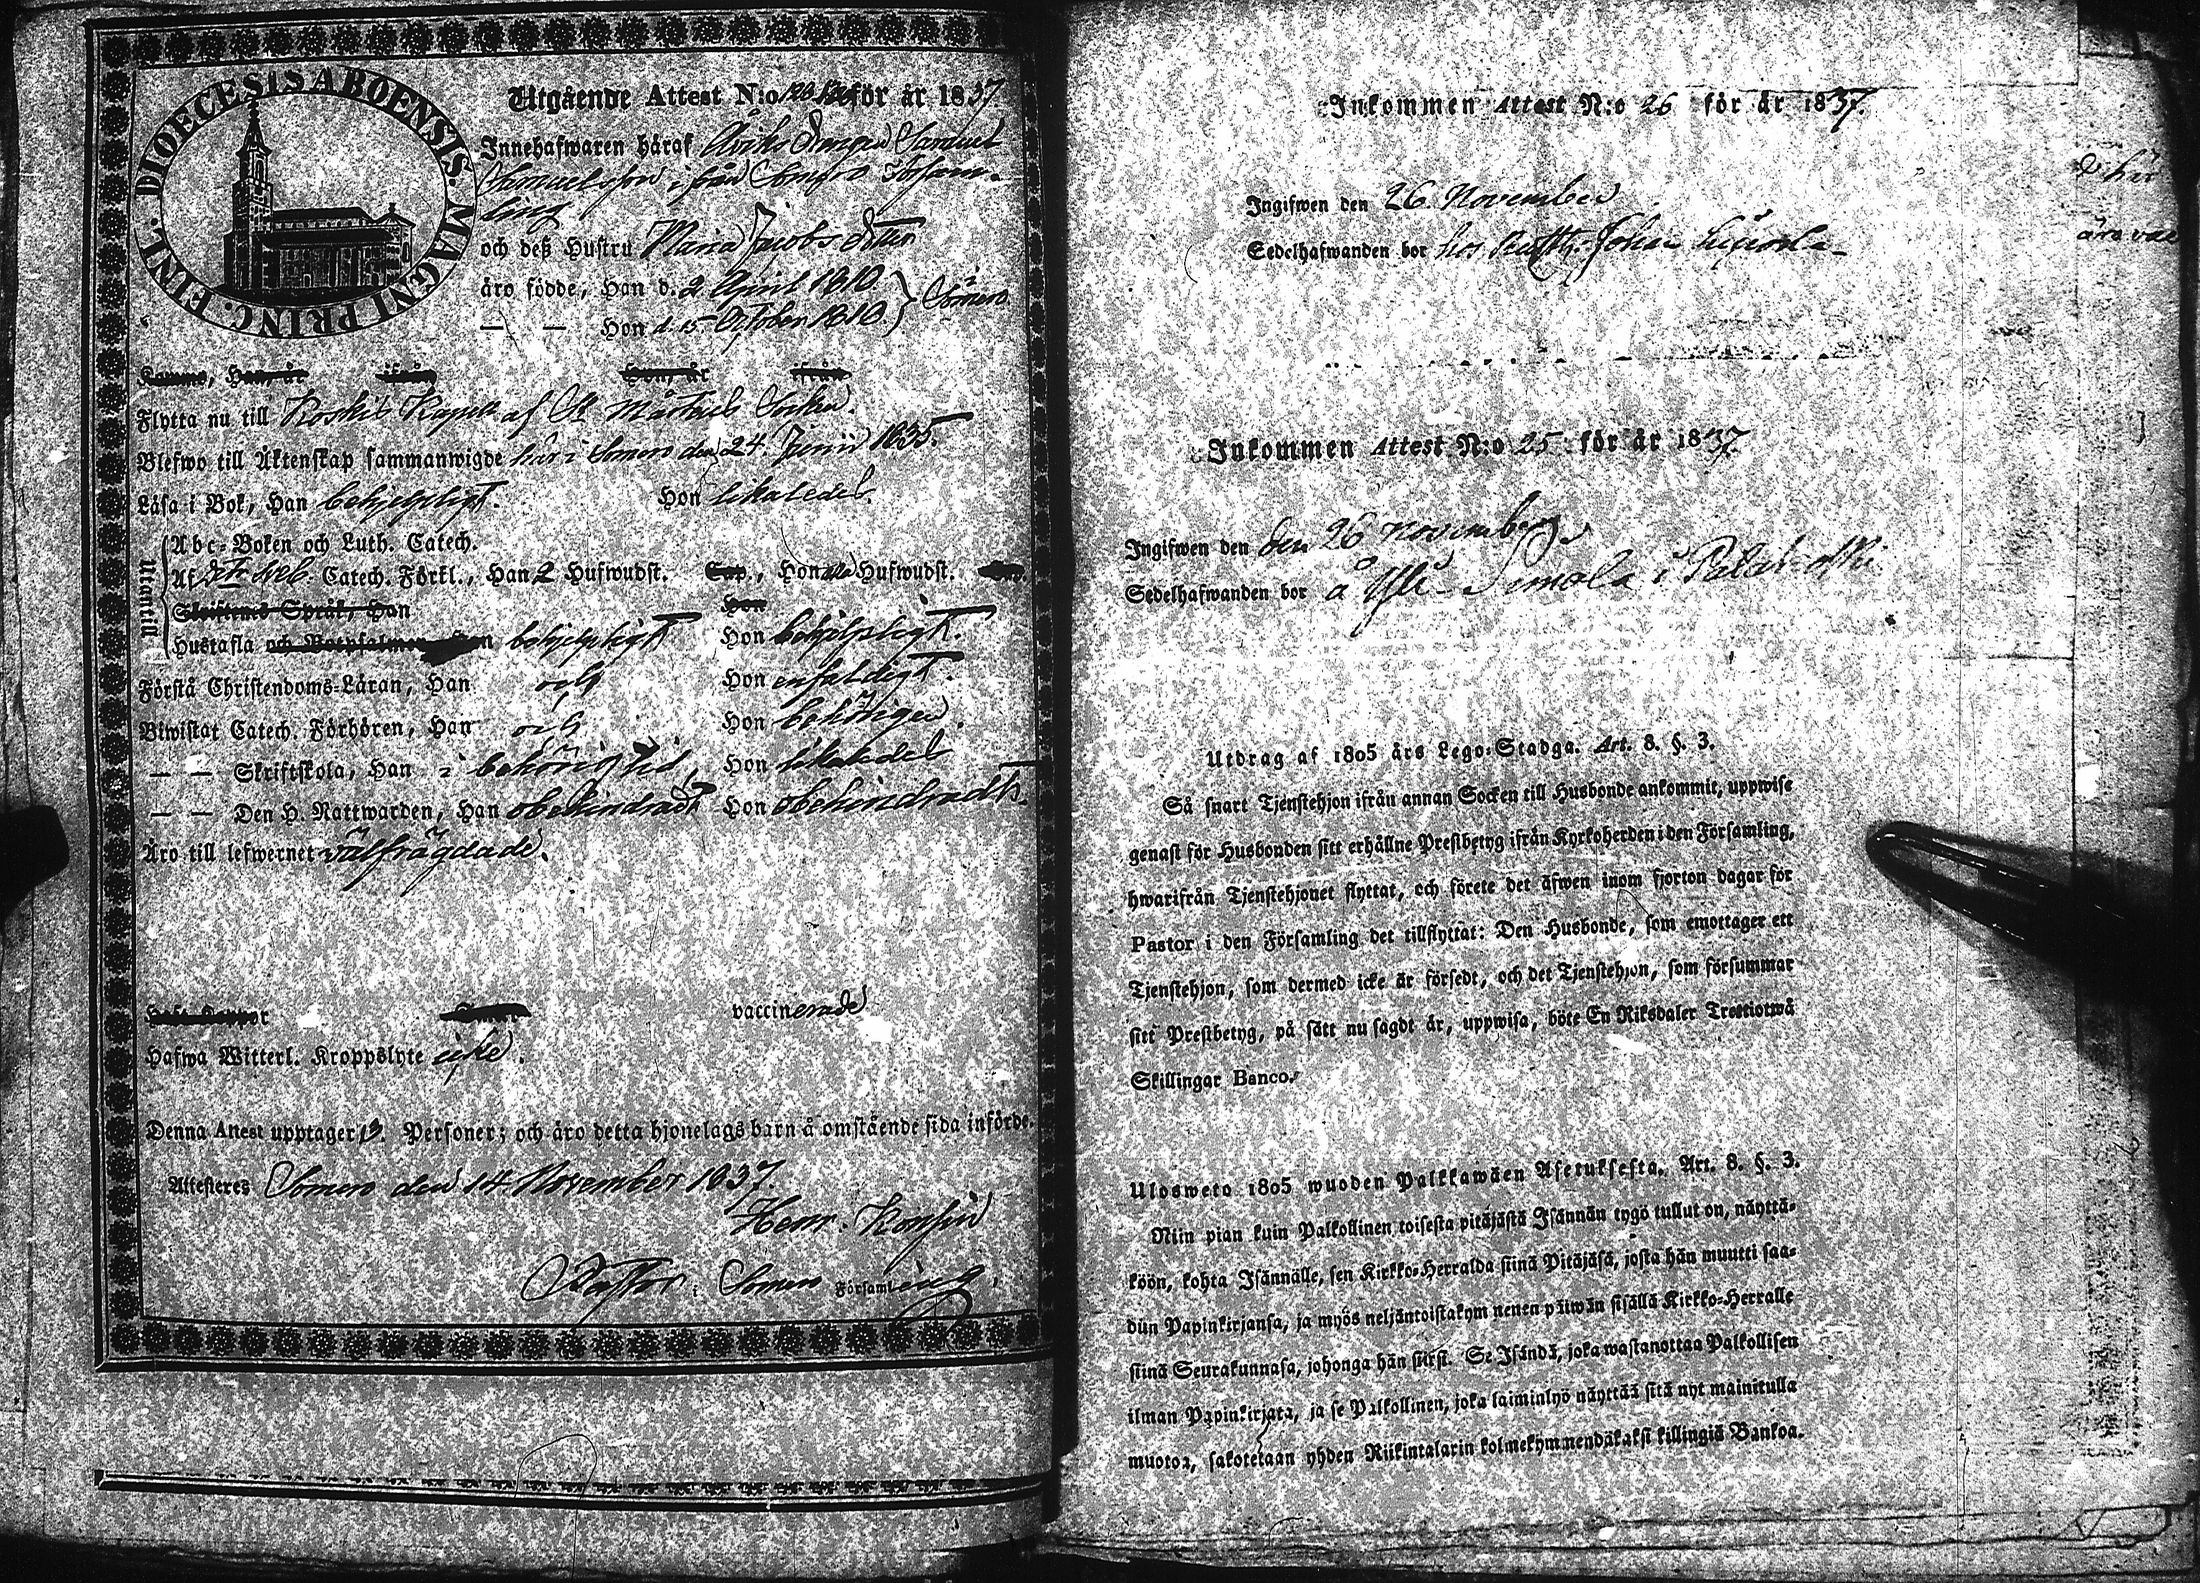 DIOECESIS ABOENSIS. MAGNI PRINC. FINL.
Utgående Attest N:o för år 1837
Innehafwaren häraf Drengen Samuel
Samuelsson ifrån Somero Församling
och deß Hustru Maria Jacobs dotter
äro födde, Han d. 2 April 1810 } Somero
— — Hon d. 15 October 1810
Komne, Han, år ifrån Hon, år ifrån
Flytta nu till Koskis Kapell af St Mårtens Socken.
Blefwo till Äktenskap sammanwigde här i Somero den 24. Junii 1835.
Läsa i Bok, Han behjelpligt. Hon likaledes.
Utantill
Abc-Boken och Luth. Catech.
Af Catech. Förkl., Han 2 Hufwudst. Cap., Hon alla Hufwudst. Cap.
Skriftens Språk, Han Hon
Hustafla och Botpsalmen, Han behjelpligt Hon behjelpligt.
Förstå Christendoms-Läran, Han och Hon enfaldigt.
Biwistat Catech. Förhören, Han och Hon behörigen.
— — Skriftskola, Han i behörig tid, Hon likaledes
— — Den H. Nattwarden, Han obehindradt Hon obehindradt.
Äro till lefwernet välfrägdade.
Haft Koppor vaccinerade
Hafwa Witterl. Kroppslyte icke.
Denna Attest upptager 3. Personer; och äro detta hjonelags barn å omstående sida införde.
Attesteres Somero den 14. November 1837.
Henr.
Pastor i Somero Församling.
Inkommen Attest N:o 26 för år 1837.
Ingifwen den 26 November
Sedelhafwanden bor hos Johan
Inkommen Attest N:o 25 för år 1837.
Ingifwen den den 26 November
Sedelhafwanden bor å Yli-Simola i
Utdrag af 1805 års Lego-Stadga. Art. 8. §. 3.
Så snart Tjenstehjon ifrån annan Socken till Husbonde ankommit, uppwise
genast för Husbonden sitt erhållne Prestbetyg ifrån Kyrkoherden i den Församling,
hwarifrån Tjenstehjonet flyttat, och förete det äfwen inom fjorton dagar för
Pastor i den Församling det tillflyttat: Den Husbonde, som emottager ett
Tjenstehjon, som dermed icke är försedt, och det Tjenstehjon, som försummar
sitt Prestbetyg, på sätt nu sagdt är, uppwisa, böte En Riksdaler Trettiotwå
Skillingar Banco.
Ulosweto 1805 wuoden Palkkawäen Asetuksesta. Art. 8. §. 3.
Niin pian kuin Palkollinen toisesta pitäjästä Isännän tygö tullut on, näyttä-
köön, kohta Isännälle, sen Kirkko-Herralda siinä Pitäjäsä, josta hän muutti saa-
dun Papinkirjansa, ja myös neljäntoistakymmenen päiwän sisällä Kirkko-Herralle
siinä Seurakunnasa, johonga hän siirsi. Se Isändä, joka wastanottaa Palkollisen
ilman Papinkirjata, ja se Palkollinen, joka laiminlyö näyttää sitä nyt mainitulla
muotoa, sakotetaan yhden Riikintalarin kolmekymmendäkaksi killingiä Bankoa.